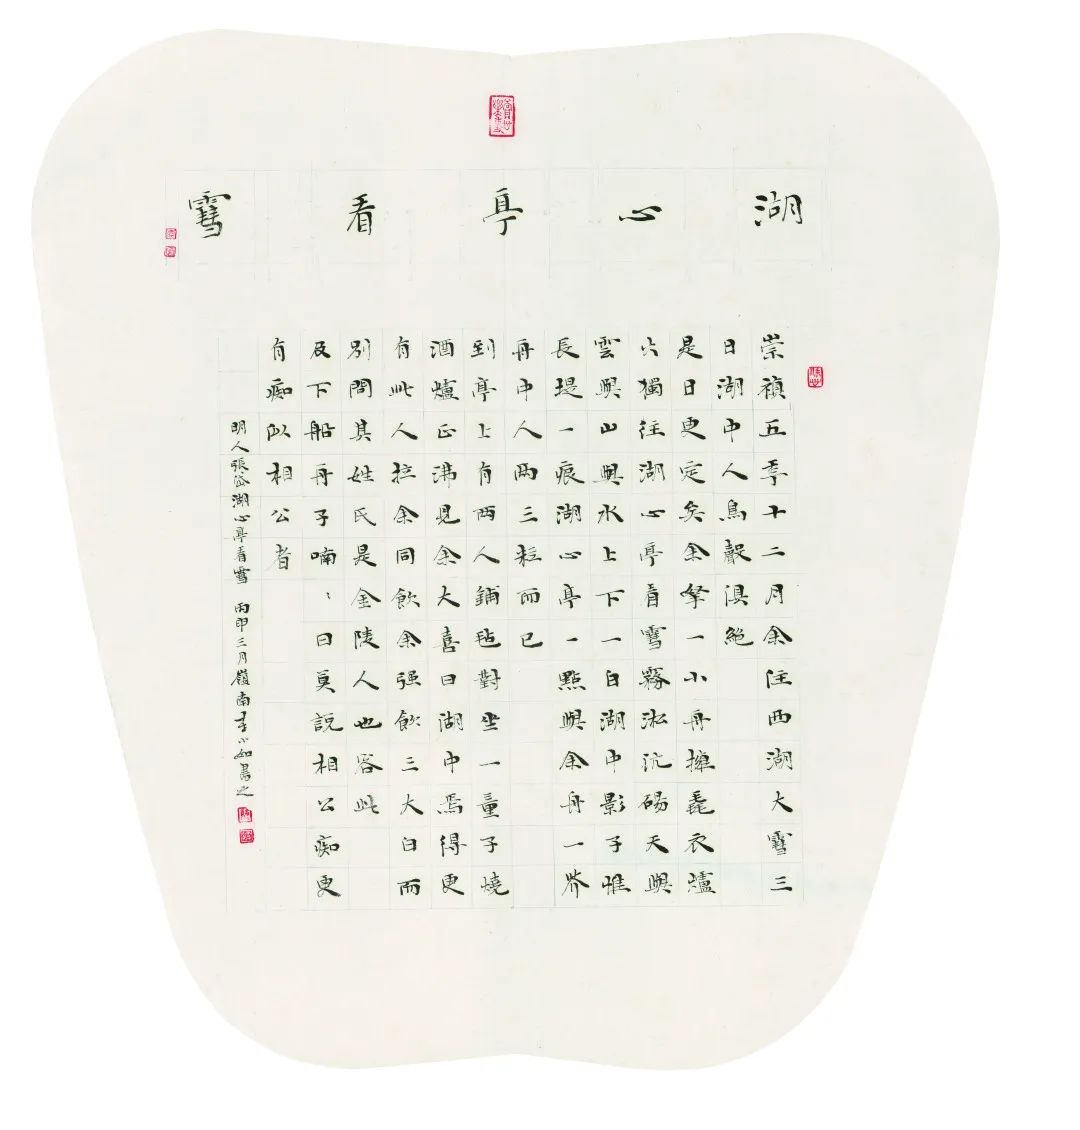 湖心亭看雪
崇禎五秊十二月余住西湖大雪三
日湖中人鳥聲俱絕
是日更定矣余拏一小舟擁毳衣爐
火獨往湖心亭看雪霧淞沆碭天與
雲與山與水上下一白湖中影子惟
長堤一痕湖心亭一點與余舟一芥
舟中人兩三粒而已
到亭上有兩人鋪毡對坐一童子燒
酒爐正沸見余大喜曰湖中焉得更
有此人拉余同飲余强飲三大白而
別問其姓氏是金陵人也客此
及下船舟子喃〻曰莫說相公痴更
有痴似相公者
明人張岱湖心亭看雪 丙申三月嶺南李小如書之